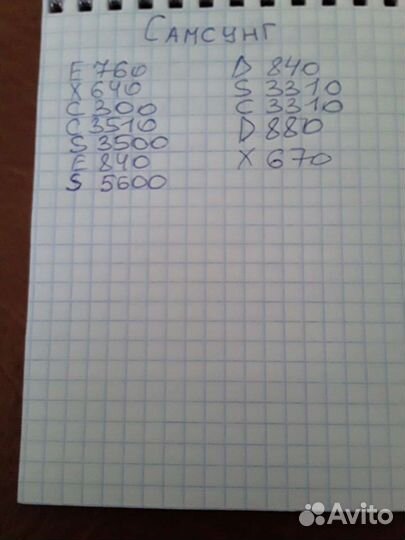 Самсунг
E 760
X 640
C 300
C 3510
S 3500
E 840
S 5600
D 840
S 3310
C 3310
D 880
X 670
Avito